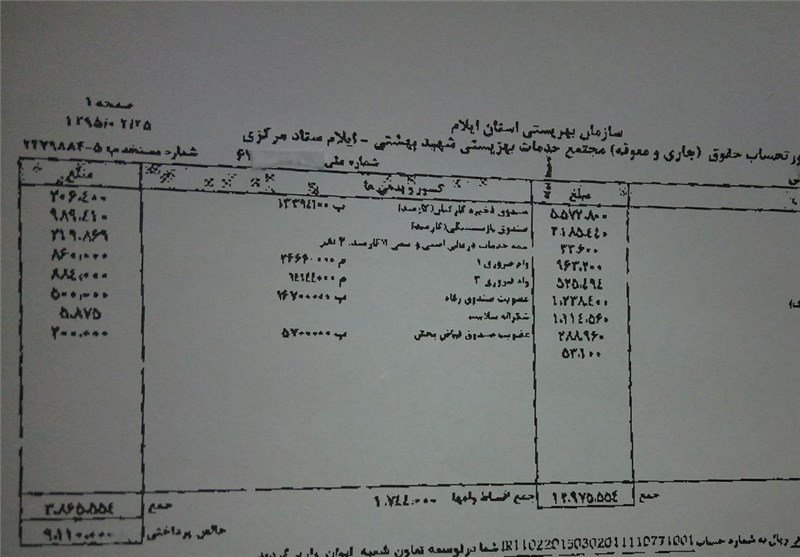 صفحه ۱
۱۳۹۵/۰۲/۲۵
سازمان بهزیستی استان ایلام
صورتحساب حقوق (جاری و معوقه) مجتمع خدمات بهزیستی شهید بهشتی - ایلام ستاد مرکزی
شماره ملی ۶۱ شماره مستخدم
مبلغ کسور و بدهی ها مبلغ
۵.۵۷۲.۸۰۰ صندوق ذخیره کارکنان(کارمند) ب ۱۳۳۹۴۱۰۰ ۲۰۶.۴۰۰
۳.۱۸۵.۴۴۰ صندوق بازنشستگی(کارمند) ۹۸۹.۴۱۰
۳۳.۶۰۰ بیمه خدمات درمانی اصلی و سهم ۲ نفر ۲۱۹.۸۶۹
۹۶۳.۲۰۰ وام ضروری ۱ م ۲۶۶۶۰۰۰۰ ۸۶۰.۰۰۰
۵۲۵.۴۹۴ وام ضروری ۲ م ۱۴۱۴۴۰۰۰ ۸۸۴.۰۰۰
۱.۲۳۸.۴۰۰ عضویت صندوق رفاه ب ۱۶۷۰۰۰۰۰ ۵۰۰.۰۰۰
۱.۱۱۴.۵۶۰ شکرانه سلامت ۵.۸۷۵
۲۸۸.۹۶۰ عضویت صندوق فیاض بخش ب ۵۷۰۰۰۰۰ ۲۰۰.۰۰۰
۵۳.۱۰۰
جمع ۱۲.۹۷۵.۵۵۴ جمع اقساط وامها ۱.۷۴۴.۰۰۰ جمع ۳.۸۶۵.۵۵۴
خالص پرداختی ۹.۱۱۰.۰۰۰
ریال به شماره حساب IR110220150302011110771001 شما در توسعه تعاون شعبه ایوان واریز گردید